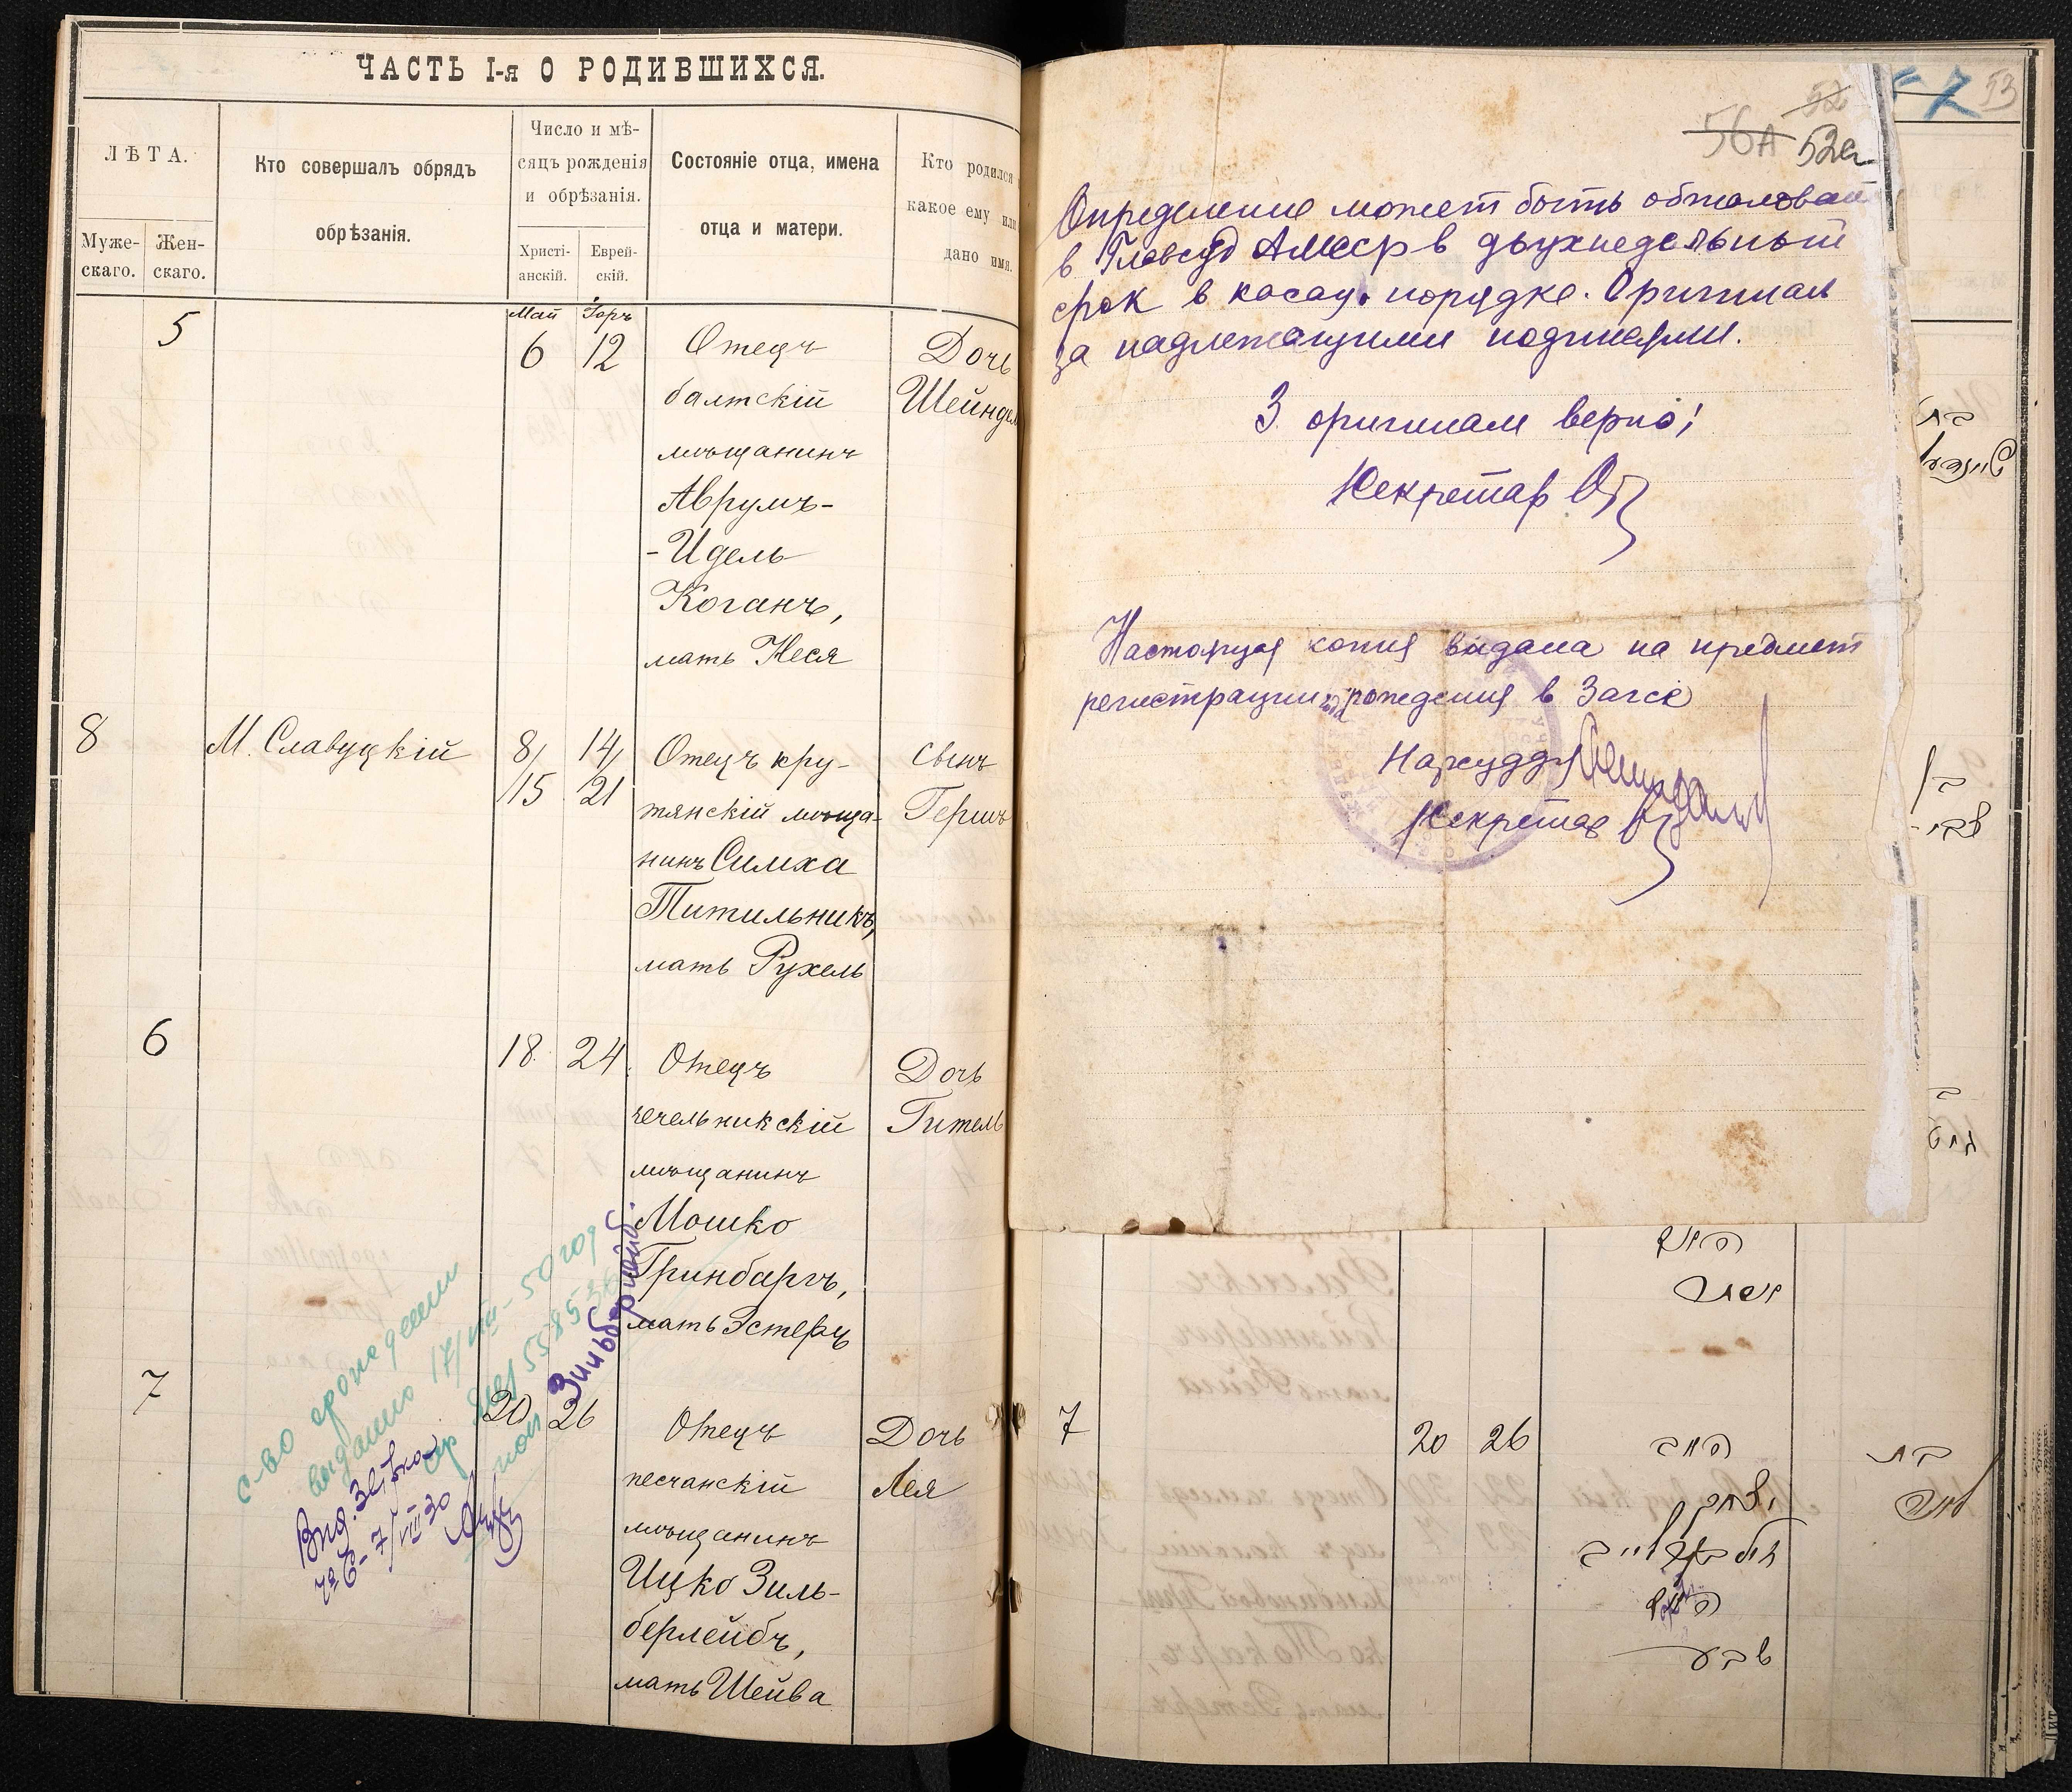 ЧАСТЬ I-я О РОДИВШИХСЯ.
ЛѢТА.
Муже-
скаго.
Жен-
скаго.
Кто совершалъ обрядъ
обрѣзанія.
Число и мѣ-
сяцъ рожденія
и обрѣзанія.
Христі-
анскій.
Еврей-
скій.
Состояніе отца, имена
отца и матери.
Кто родился
какое ему или
дано имя.
Май
5
6
12
Отецъ
балтскій
мѣщанинъ
Аврумъ-
-Идель
Коганъ,
мать Неся
Дочь
Шейндель
8
М. Славуцкій
8/
15
14/
21
Отецъ кру-
тянскій мѣща-
нинъ Симха
Титильникъ,
мать Рухель
сынъ
Гершъ
6
18
24
Отецъ
чечельникскій
мѣщанинъ
Мошко
Гринбаргъ,
мать Эстеръ
Дочь
Гитель
7
20
26
Отецъ
песчанскій
мѣщанинъ
Ицко Зиль-
берлейбъ,
мать Шейва
Дочь
Лея
с-во о рождении
выдано 17/VIII-50 год
Зильберлейб.
7 53
52
56А 52а
Определение может быть обжалован
в Главсуд АМССР в двухнедельный
срок в касац. порядке. Оригинал
за надлежащими подписями.
З оригиналом верно:
Секретар
Настоящая копия выдана на предмет
регистрации рождения в Загсе
Нарсуддя
Секретар
7
20
26
בת
לאה
יצחק
שבע